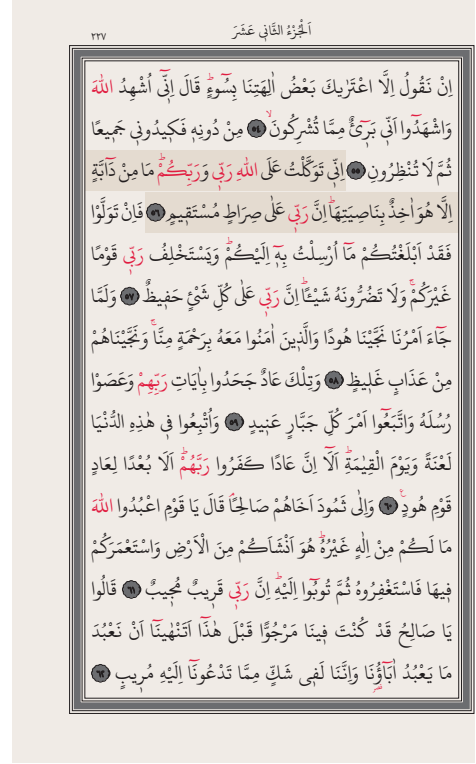 اَلْجُزْءُ الثَّانِي عَشَرَ
٢٢٧
اِنْ نَقُولُ اِلَّا اعْتَرٰيكَ بَعْضُ اٰلِهَتِنَا بِسُٓوءٍۜ قَالَ اِنّ۪ٓي اُشْهِدُ اللّٰهَ
وَاشْهَدُٓوا اَنّ۪ي بَر۪ٓيءٌ مِمَّا تُشْرِكُونَۙ ﴿٥٤﴾ مِنْ دُونِه۪ فَك۪يدُون۪ي جَم۪يعًا
ثُمَّ لَا تُنْظِرُونِ ﴿٥٥﴾ اِنّ۪ي تَوَكَّلْتُ عَلَى اللّٰهِ رَبّ۪ي وَرَبِّكُمْۜ مَا مِنْ دَٓابَّةٍ
اِلَّا هُوَ اٰخِذٌ بِنَاصِيَتِهَاۜ اِنَّ رَبّ۪ي عَلٰى صِرَاطٍ مُسْتَق۪يمٍ ﴿٥٦﴾ فَاِنْ تَوَلَّوْا
فَقَدْ اَبْلَغْتُكُمْ مَٓا اُرْسِلْتُ بِه۪ٓ اِلَيْكُمْۜ وَيَسْتَخْلِفُ رَبّ۪ي قَوْمًا
غَيْرَكُمْۚ وَلَا تَضُرُّونَهُ شَيْـًٔاۜ اِنَّ رَبّ۪ي عَلٰى كُلِّ شَيْءٍ حَف۪يظٌ ﴿٥٧﴾ وَلَمَّا
جَٓاءَ اَمْرُنَا نَجَّيْنَا هُودًا وَالَّذ۪ينَ اٰمَنُوا مَعَهُ بِرَحْمَةٍ مِنَّاۚ وَنَجَّيْنَاهُمْ
مِنْ عَذَابٍ غَل۪يظٍ ﴿٥٨﴾ وَتِلْكَ عَادٌ جَحَدُوا بِاٰيَاتِ رَبِّهِمْ وَعَصَوْا
رُسُلَهُ وَاتَّبَعُٓوا اَمْرَ كُلِّ جَبَّارٍ عَن۪يدٍ ﴿٥٩﴾ وَاُتْبِعُوا ف۪ي هٰذِهِ الدُّنْيَا
لَعْنَةً وَيَوْمَ الْقِيٰمَةِۜ اَلَٓا اِنَّ عَادًا كَفَرُوا رَبَّهُمْۜ اَلَا بُعْدًا لِعَادٍ
قَوْمِ هُودٍ۟ ﴿٦٠﴾ وَاِلٰى ثَمُودَ اَخَاهُمْ صَالِحًاۢ قَالَ يَا قَوْمِ اعْبُدُوا اللّٰهَ
مَا لَكُمْ مِنْ اِلٰهٍ غَيْرُهُۜ هُوَ اَنْشَاَكُمْ مِنَ الْاَرْضِ وَاسْتَعْمَرَكُمْ
ف۪يهَا فَاسْتَغْفِرُوهُ ثُمَّ تُوبُٓوا اِلَيْهِۜ اِنَّ رَبّ۪ي قَر۪يبٌ مُج۪يبٌ ﴿٦١﴾ قَالُوا
يَا صَالِحُ قَدْ كُنْتَ ف۪ينَا مَرْجُوًّا قَبْلَ هٰذَٓا اَتَنْهٰينَٓا اَنْ نَعْبُدَ
مَا يَعْبُدُ اٰبَٓاؤُ۬نَا وَاِنَّنَا لَف۪ي شَكٍّ مِمَّا تَدْعُونَٓا اِلَيْهِ مُر۪يبٍ ﴿٦٢﴾